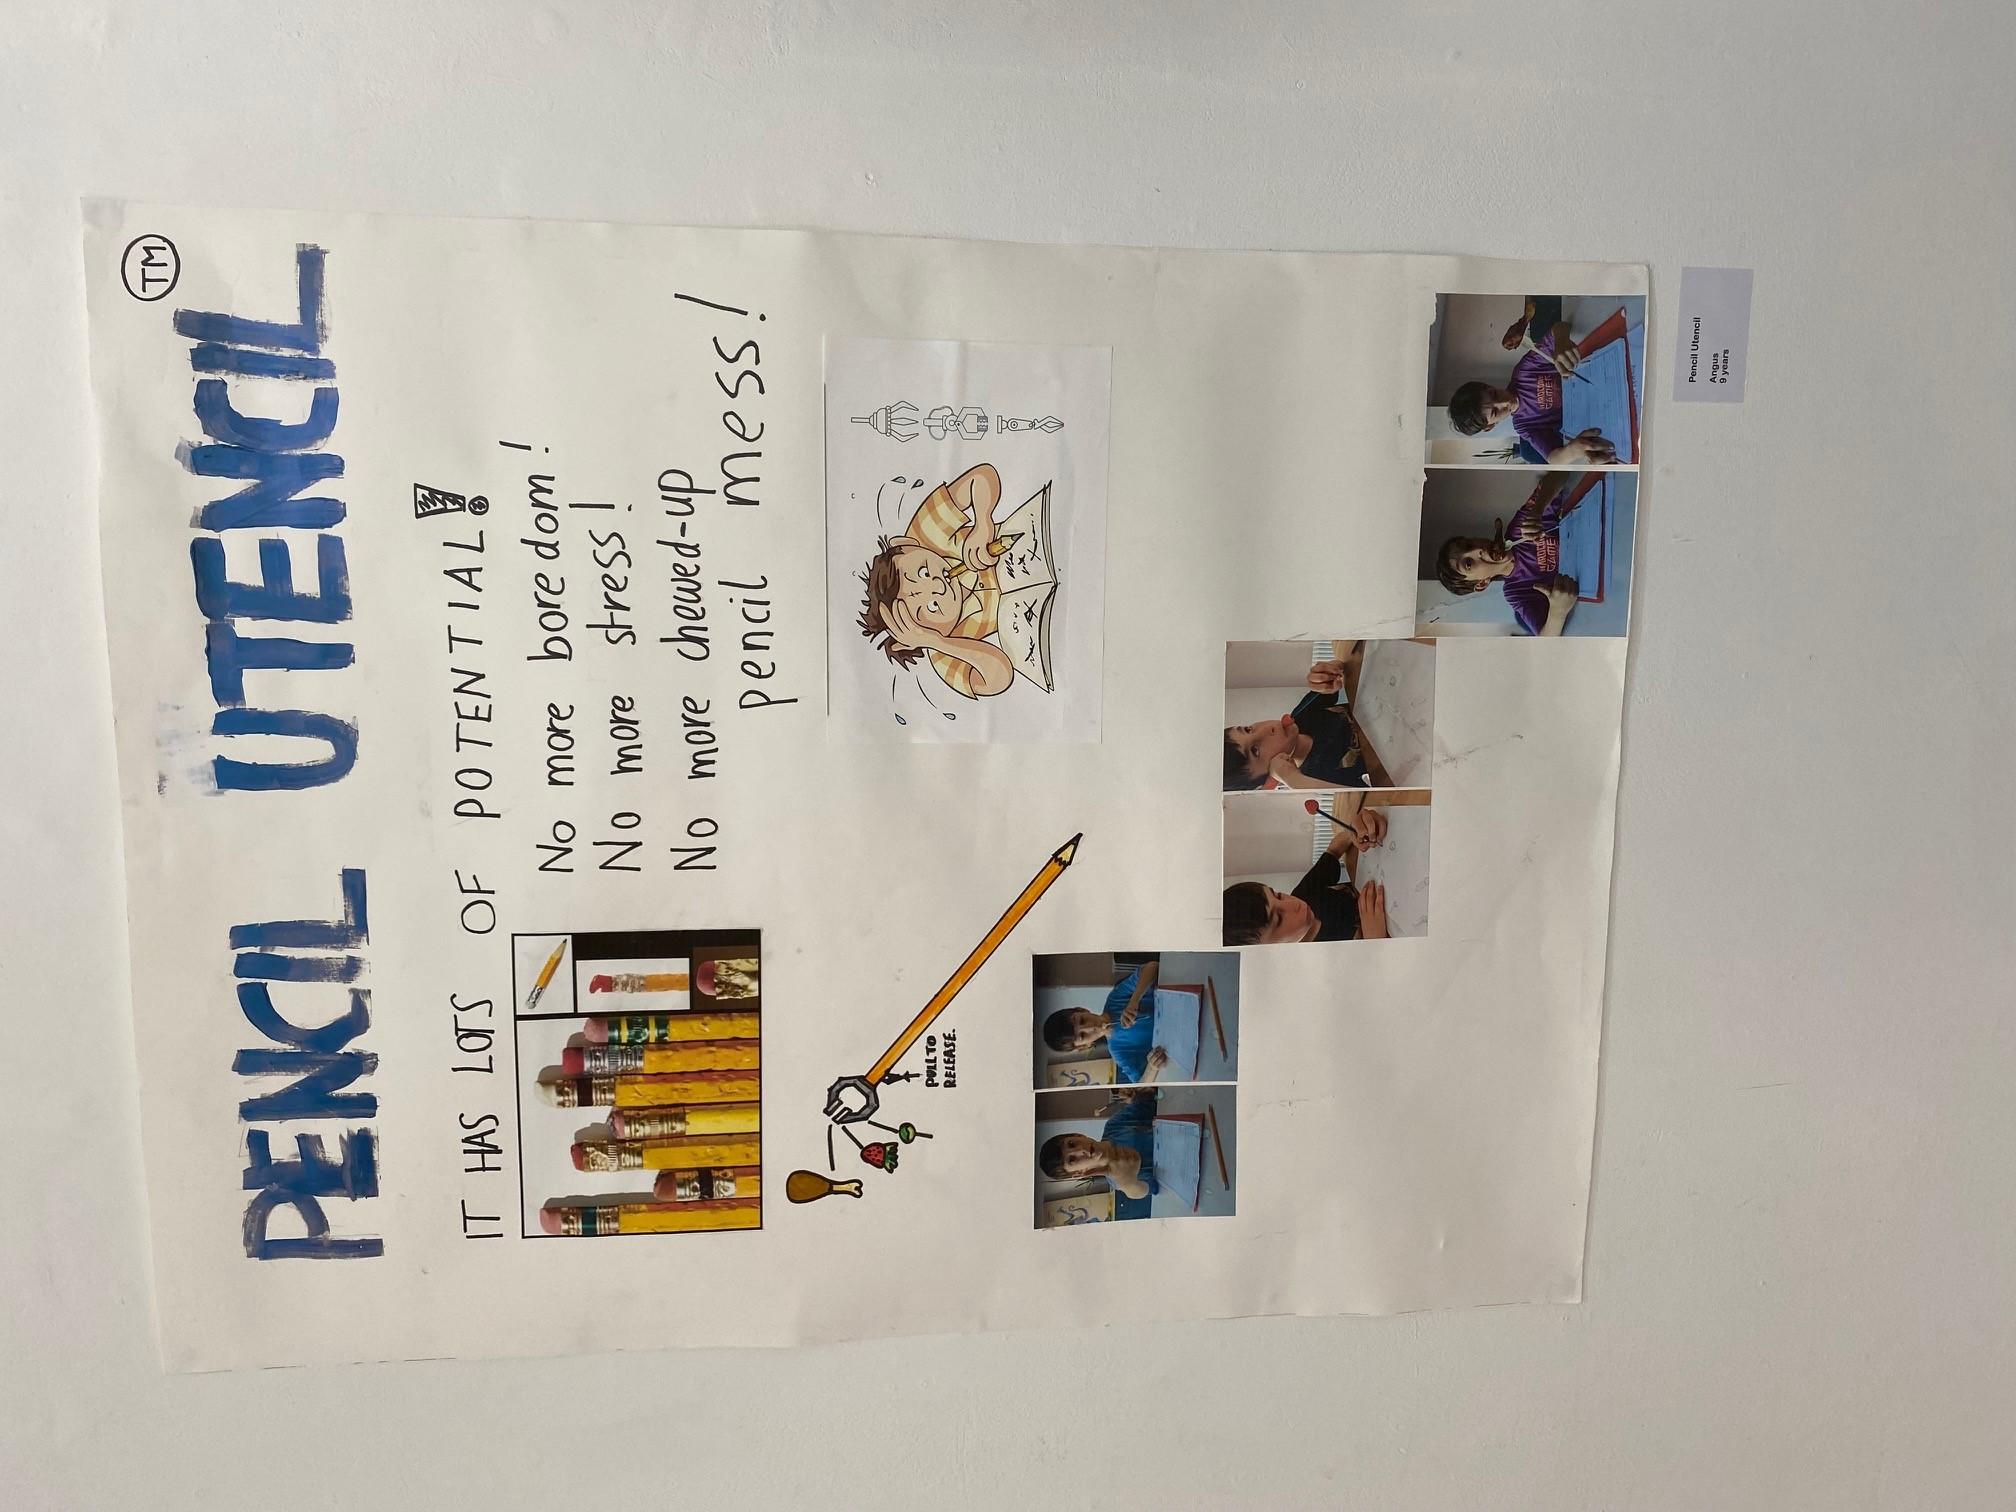 PENCIL UTENCIL TM
IT HAS LOTS OF POTENTIAL!
No more boredom!
No more stress!
No more chewed-up
pencil mess!
PULL TO
RELEASE.
Pencil Utencil
Angus
9 years